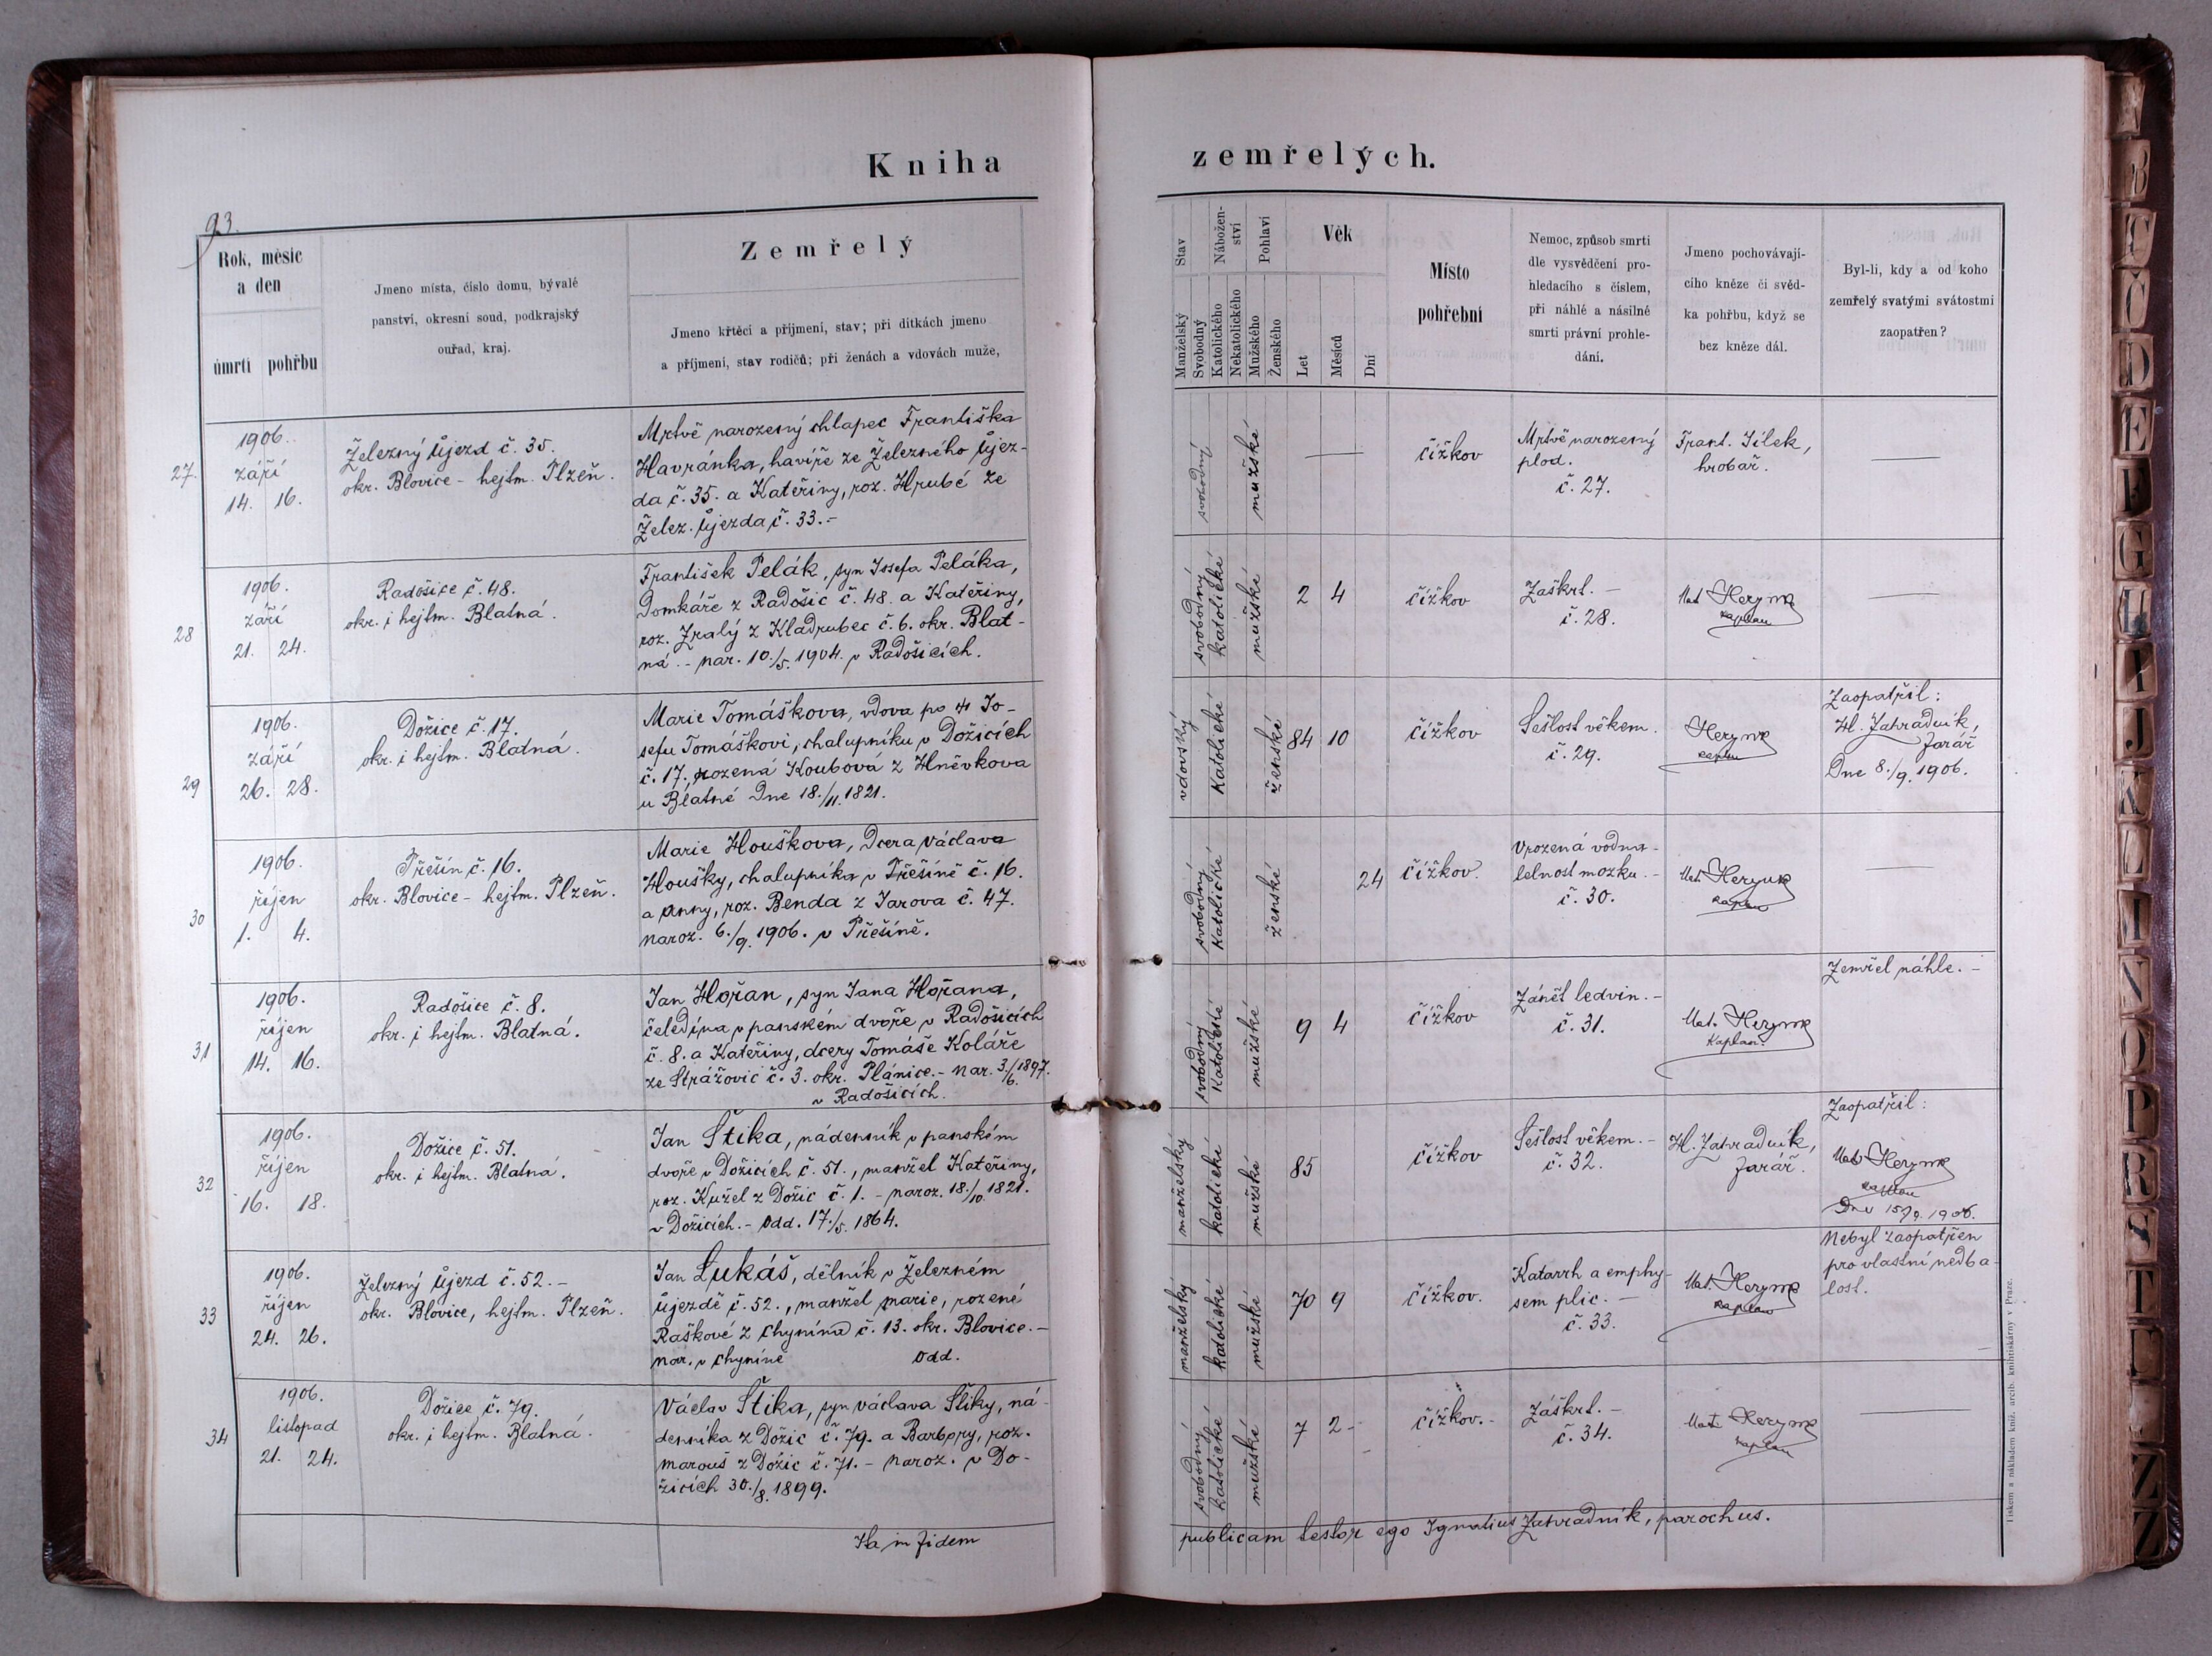 Kniha zemřelých.
93.
Rok, měsíc
a den
úmrtí pohřbu
Jmeno místa, číslo domu, bývalé
panství, okresní soud, podkrajský
ouřad, kraj.
Zemřelý
Jmeno křtěcí a příjmení, stav; při dítkách jmeno
a příjmení, stav rodičů; při ženách a vdovách muže,
Stav
Manželský
Svobodný
Nábožen-
ství
Katolického
Nekatolického
Pohlaví
Mužského
Ženského
Věk
Let
Měsíců
Dní
Místo
pohřební
Nemoc, způsob smrti
dle vysvědčení pro-
hledacího s číslem,
při náhlé a násilné
smrti právní prohle-
dání.
Jmeno pochovávají-
cího kněze či svěd-
ka pohřbu, když se
bez kněze dál.
Byl-li, kdy a od koho
zemřelý svatými svátostmi
zaopatřen?
27.
1906.
září
14. 16.
Železný Újezd č. 35.
okr. Blovice - hejtm. Plzeň.
Mrtvě narozený chlapec Františka
Havránka, havíře ze Železného Újez-
da č. 35. a Kateřiny, roz. Hrubé ze
Želez. Újezda č. 33. -
svobodný
mužské
—
Čížkov
Mrtvě narozený
plod.
č. 27.
Frant. Jílek,
hrobař.
—
28
1906.
září
21. 24.
Radošice č. 48.
okr. i hejtm. Blatná.
František Pelák, syn Josefa Peláka,
Domkáře z Radošic č. 48. a Kateřiny,
roz. Zralý z Kladrubec č. 6. okr. Blat-
ná. - nar. 10./5. 1904. v Radošicích.
svobodný
katolické
mužské
2 4
Čížkov
Zaškrt. -
č. 28.
Mat. Heryna
kaplan
—
29
1906.
září
26. 28.
Dožice č. 17.
okr. i hejtm. Blatná.
Marie Tomáškova, vdova po † Jo-
sefu Tomáškovi, chalupníku v Dožicích
č. 17. rozená Koubová z Hněvkova
u Blatné Dne 18./11. 1821.
vdovský
Katolické
ženské
84 10
Čížkov
Sešlost věkem.
č. 29.
Heryna
kaplan
Zaopatřil:
Ig. Zahradník,
farář
Dne 8./9. 1906.
30
1906.
říjen
1. 4.
Přešín č. 16.
okr. Blovice - hejtm. Plzeň.
Marie Houškova, Dcera Václava
Houšky, chalupníka v Přešíně č. 16.
a Anny, roz. Benda z Jarova č. 47.
naroz. 6./9. 1906. v Přešíně.
svobodný
Katolické
ženské
24
Čížkov.
Vrozená vodna-
telnost mozku. -
č. 30.
Mat. Heryna
kaplan
—
31
1906.
říjen
14. 16.
Radošice č. 8.
okr. i hejtm. Blatná.
Jan Hořan, syn Jana Hořana,
čeledína v panském dvoře v Radošicích
č. 8. a Kateřiny, dcery Tomáše Koláře
ze Strážovic č. 3. okr. Plánice. - nar. 3./6. 1897.
v Radošicích.
svobodný
Katolické
mužské
9 4
Čížkov
Zánět ledvin. -
č. 31.
Mat. Heryna
kaplan.
Zemřel náhle. -
32
1906.
říjen
16. 18.
Dožice č. 51.
okr. i hejtm. Blatná.
Jan Štika, nádenník v panském
dvoře v Dožicích č. 51., manžel Kateřiny,
roz. Kužel z Dožic č. 1. - naroz. 18./10. 1821.
v Dožicích. - Odd. 17./5. 1864.
manželský
katolické
mužské
85
Čížkov
Sešlost věkem. -
č. 32.
Ig. Zahradník,
farář.
Zaopatřil:
Mat. Heryna
kaplan
Dne 15./9. 1906.
33
1906.
říjen
24. 26.
Železný Újezd č. 52. -
okr. Blovice, hejtm. Plzeň.
Jan Lukáš, dělník v Železném
Újezdě č. 52., manžel Marie, rozené
Raškové z Chynína č. 13. okr. Blovice. -
nar. v Chyníně Odd.
manželský
katolické
mužské
70 9
Čížkov.
Katarrh a emphy-
sem plic. -
č. 33.
Mat. Heryna
kaplan
Nebyl zaopatřen
pro vlastní nedba-
lost.
34
1906.
listopad
21. 24.
Dožice č. 79.
okr. i hejtm. Blatná.
Václav Štika, syn Václava Štiky, ná-
denníka z Dožic č. 79. a Barbory, roz.
Marouš z Dožic č. 71. - naroz. v Do-
žicích 30./8. 1899.
svobodný
katolické
mužské
7 2 -
Čížkov. -
Záškrt. -
č. 34.
Mat. Heryna
kaplan
—
Ita in fidem publicam testor ego Ignatius Zahradník, parochus.
Tiskem a nákladem kníž. arcib. knihtiskárny v Praze.
B
C
Č
D
E
F
G
H
I
J
K
L
N
O
P
R
S
T
Z
Ž